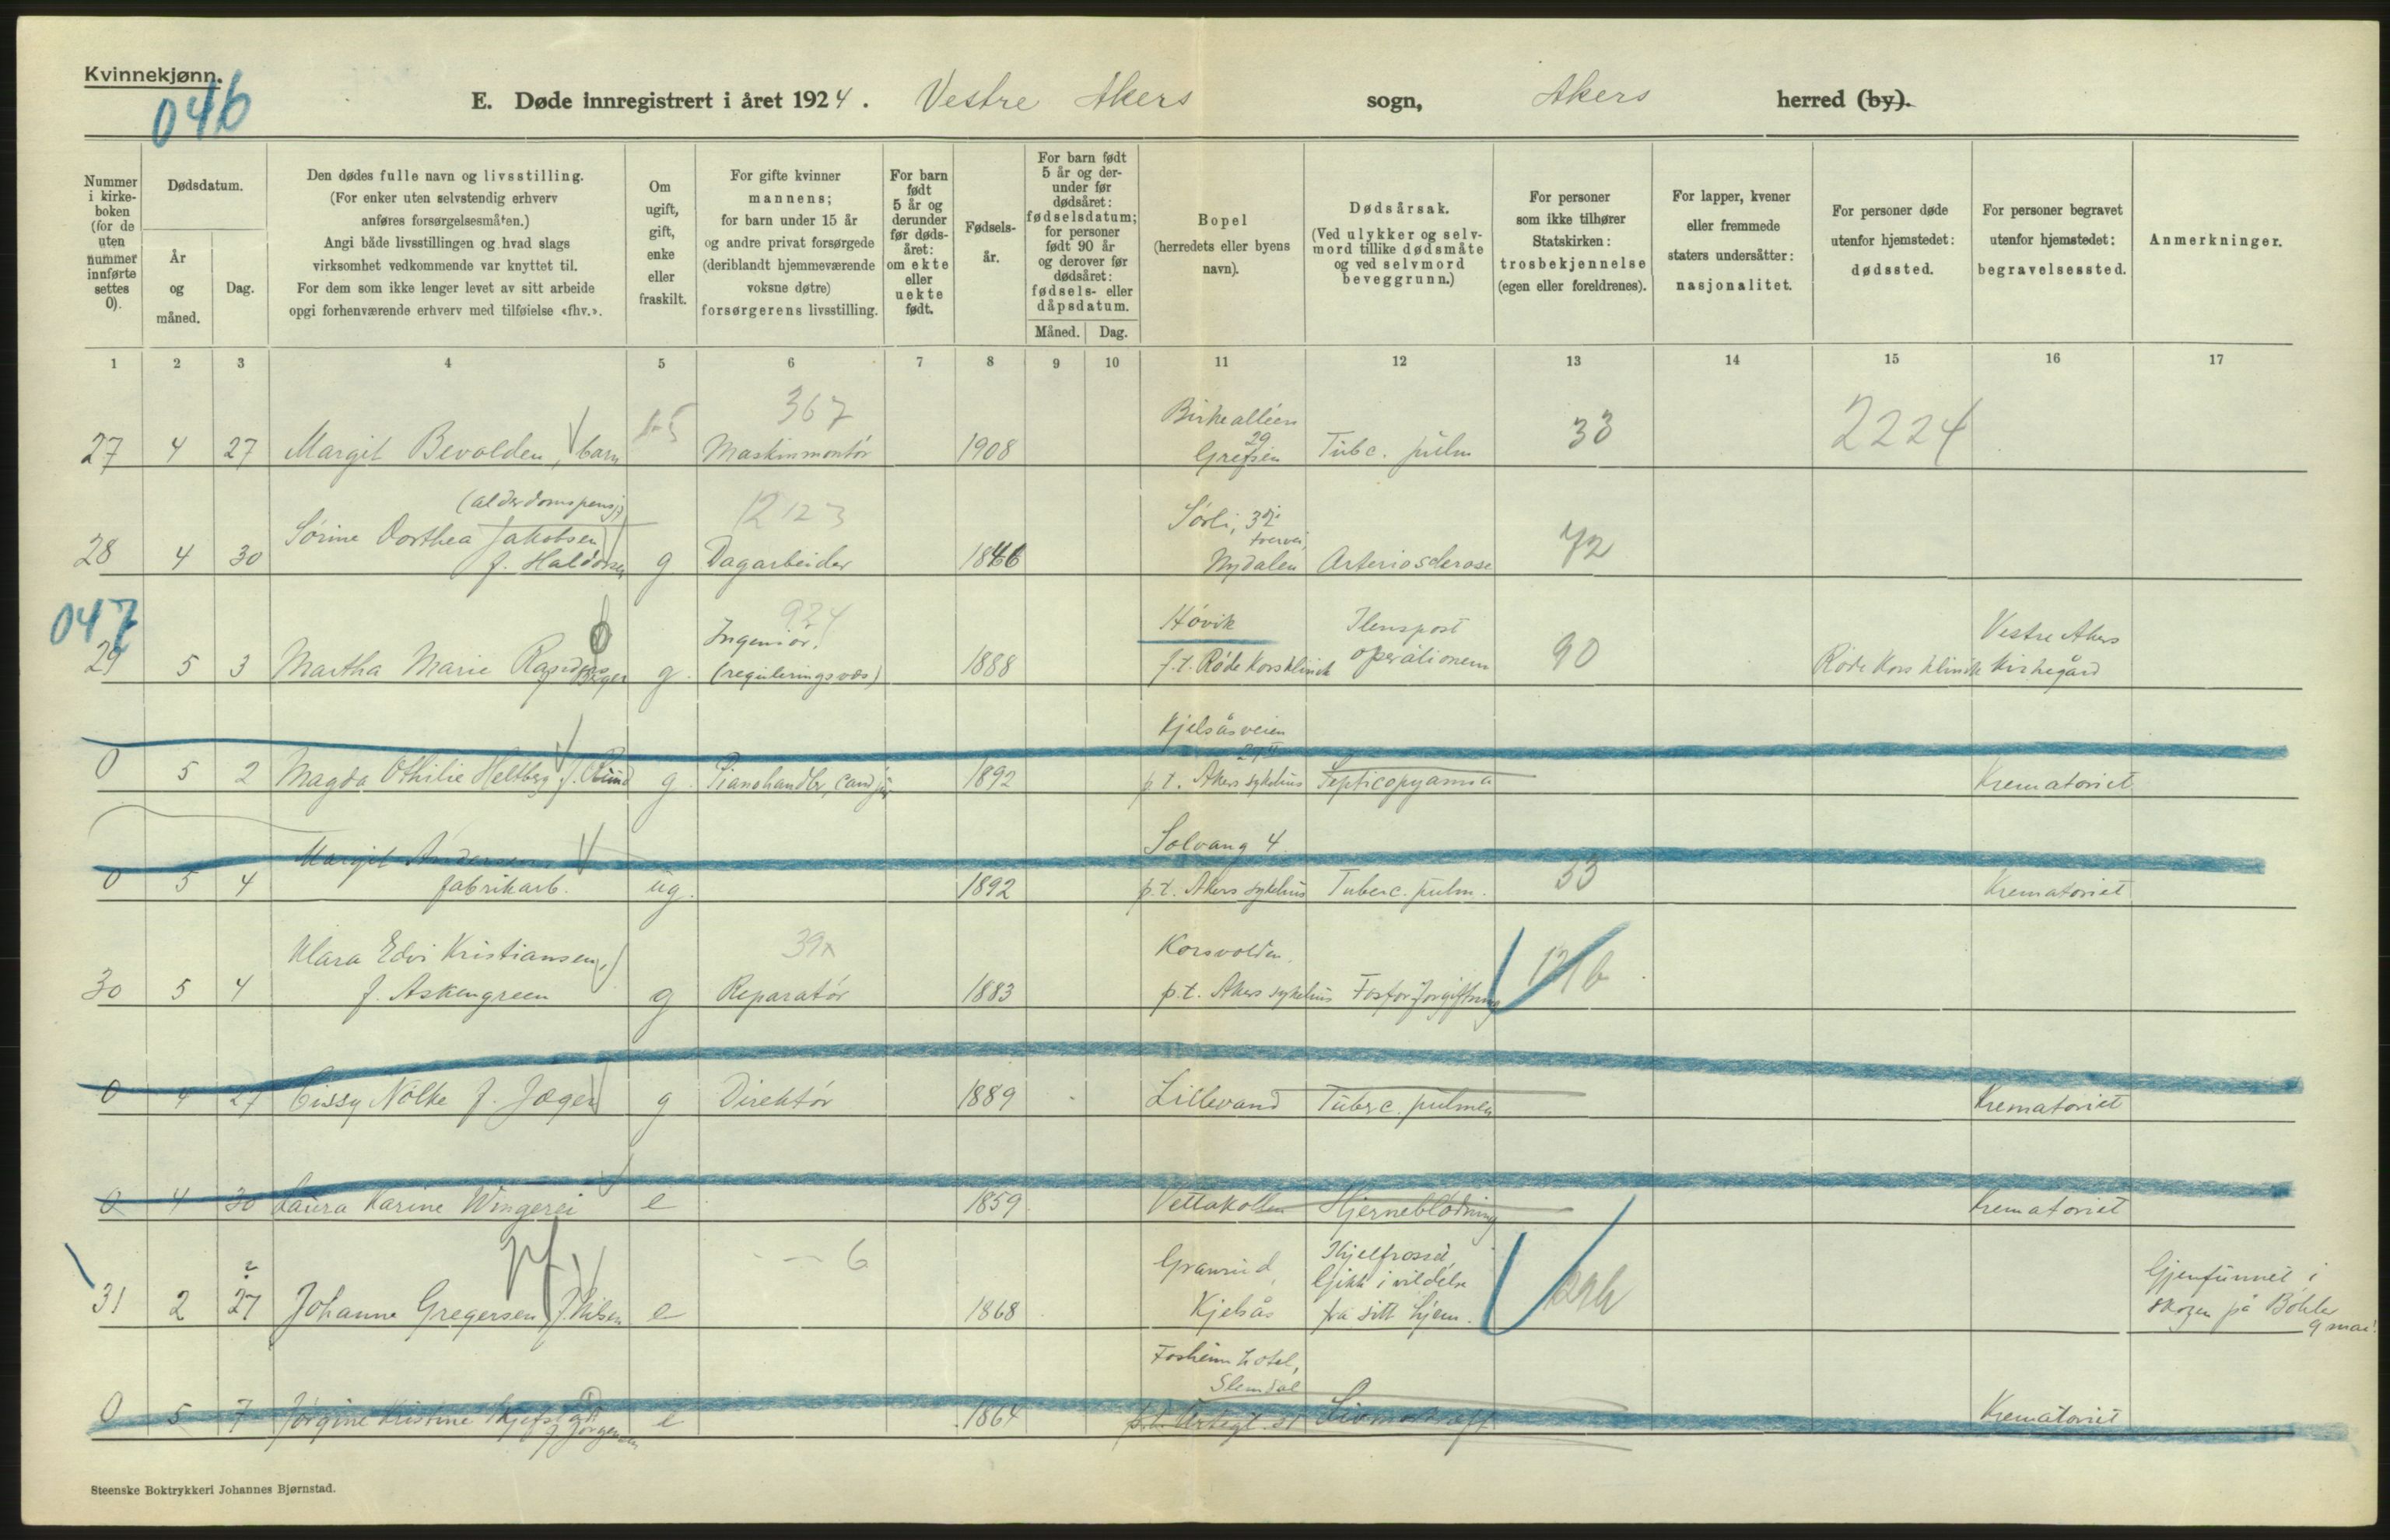 Kvinnekjønn.
046
E. Døde innregistrert i året 1924. Vestre Akers sogn, Akers herred (by).
Nummer i kirkeboken (for de uten nummer innførte settes 0).
Dødsdatum.
År og måned.
Dag.
Den dødes fulle navn og livsstilling.
(For enker uten selvstendig erhverv anføres forsørgelsesmåten.)
Angi både livsstillingen og hvad slags virksomhet vedkommende var knyttet til.
For dem som ikke lenger levet av sitt arbeide opgi forhenværende erhverv med tilføielse «fhv.».
Om ugift, gift, enke eller fraskilt.
For gifte kvinner mannens; for barn under 15 år og andre privat forsørgede (deriblandt hjemmeværende voksne døtre) forsørgerens livsstilling.
For barn født 5 år og derunder før dødsåret: om ekte eller uekte født.
Fødselsår.
For barn født 5 år og derunder før dødsåret: fødselsdatum; for personer født 90 år og derover før dødsåret: fødsels- eller dåpsdatum.
Måned. Dag.
Bopel (herredets eller byens navn).
Dødsårsak. (Ved ulykker og selvmord tillike dødsmåte og ved selvmord beveggrunn.)
For personer som ikke tilhører Statskirken: trosbekjennelse (egen eller foreldrenes).
For lapper, kvener eller fremmede staters undersåtter: nasjonalitet.
For personer døde utenfor hjemstedet: dødssted.
For personer begravet utenfor hjemstedet: begravelsessted.
Anmerkninger.
1 2 3 4 5 6 7 8 9 10 11 12 13 14 15 16 17
367 Birkealléen
27 4 27 Margit Bevolden, barn Maskinmontør 1908 29 Grefsen Tubc. pulm 33 2224
(alderdomspensj) 12123 Sørli, 3dje
Sørine Dorthea Jakobsen tvervei,
28 4 30 f. Haldorsen g Dagarbeider 1846 Nydalen Arteriosclerose 72
047 924 Høvik Ilenspost Vestre Akers
Ingeniør,
29 5 3 Martha Marie g. (reguleringsvæs) 1888 p.t. Røde Kors klinik operationem 90 Røde Kors klinik kirkegård
Kjelsåsveien
27 II
0 5 2 Magda Othilie Heltberg f. g. Pianohandler, cand jur 1892 p.t. Akers sykehus Septicopyæmia Krematoriet
Margit Andersen Solvang 4.
0 5 4 fabrikarb. ug. 1892 p.t. Akers sykehus Tuberc. pulm. 33 Krematoriet
Klara Edvi Kristiansen, 39 Korsvolden.
30 5 4 f. Askengreen g Reparatør 1883 p.t. Akers sykehus Fosforforgiftning
0 4 27 Cissy Nölke f. Jæger g Direktør 1889 Lillevand Tuberc. pulmon Krematoriet
0 4 30 Laura Karine Wingerei e 1859 Vettakollen Hjerneblødning Krematoriet
6 Granrud, Ihjelfrosset, Gjenfunnet i
? Gikk i vildelse skogen på Bøhler
31 2 27 Johanne Gregersen f. Nilsen e 1868 Kjelsås fra sitt hjem. 9 mai.
Fosheim hotel,
Slemdal
0 5 7 Jørgine Kristine f. Jørgensen e 1864 Krematoriet
Steenske Boktrykkeri Johannes Bjørnstad.